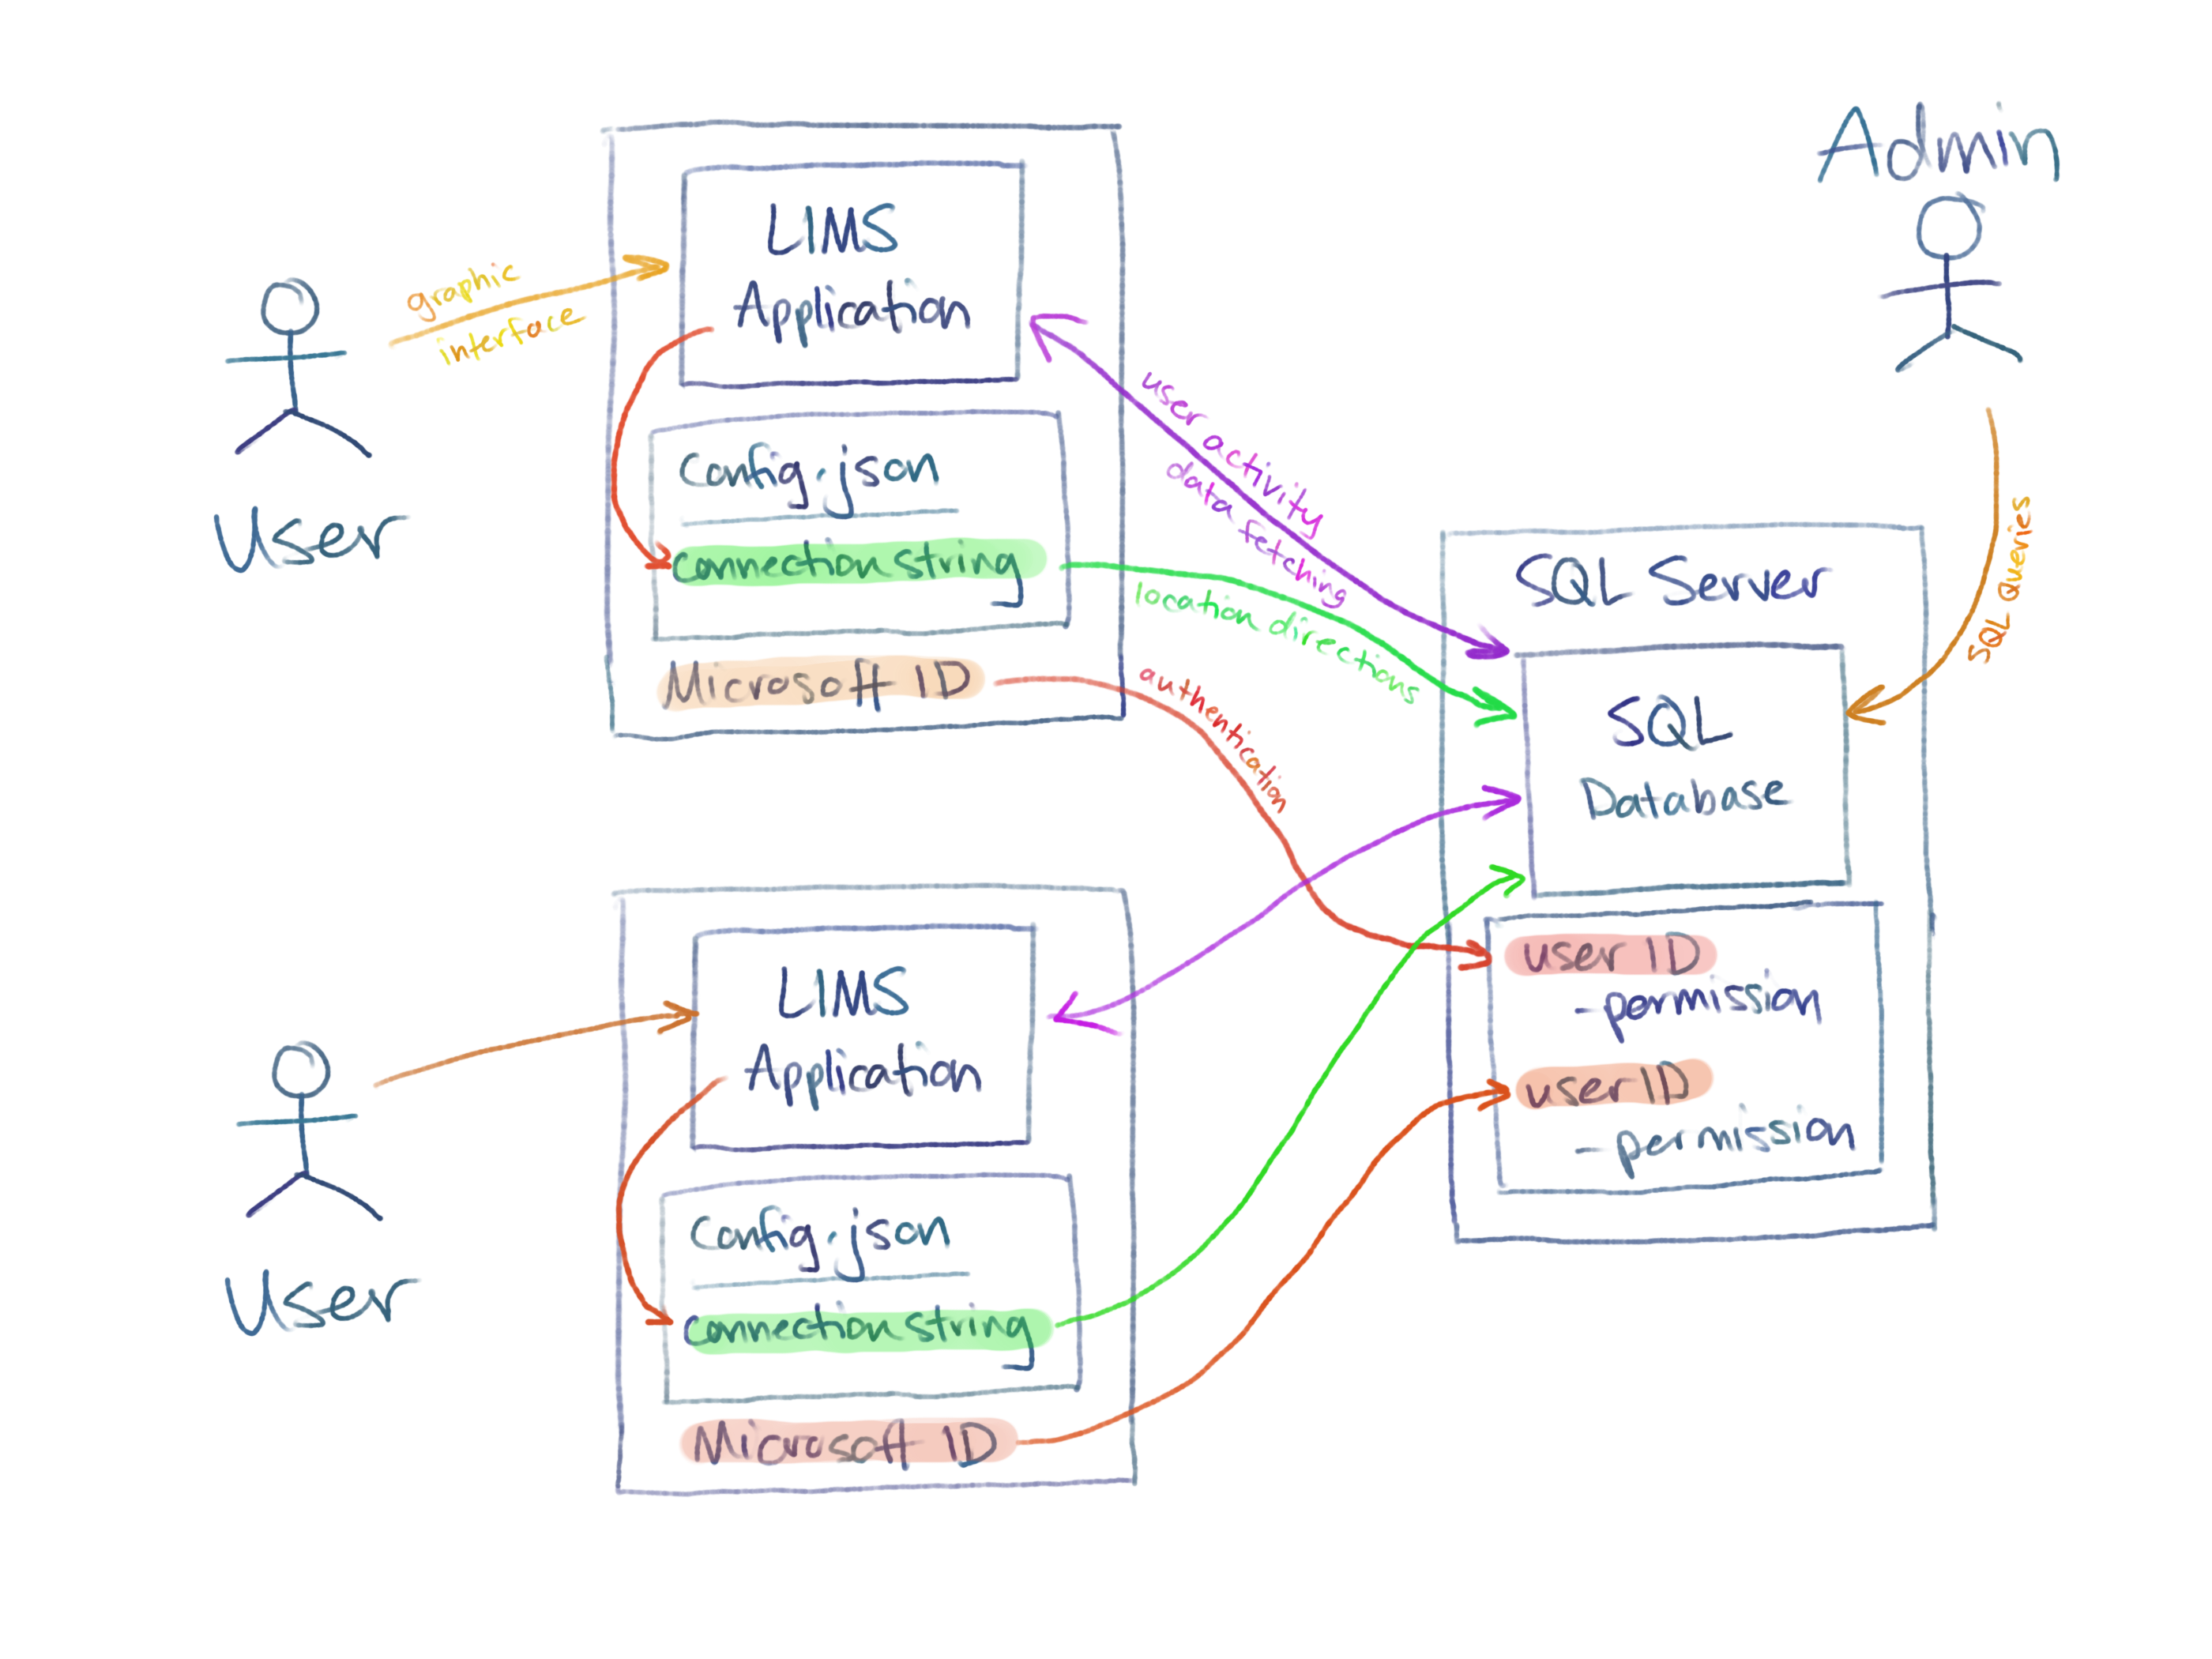 Admin
graphic
interface
User
LIMS
Application
Config.json
connection string
Microsoft ID
user activity
data fetching
location directions
authentication
SQL Queries
SQL Server
SQL
Database
user ID
- permission
user ID
- permission
User
LIMS
Application
Config.json
connection string
Microsoft ID